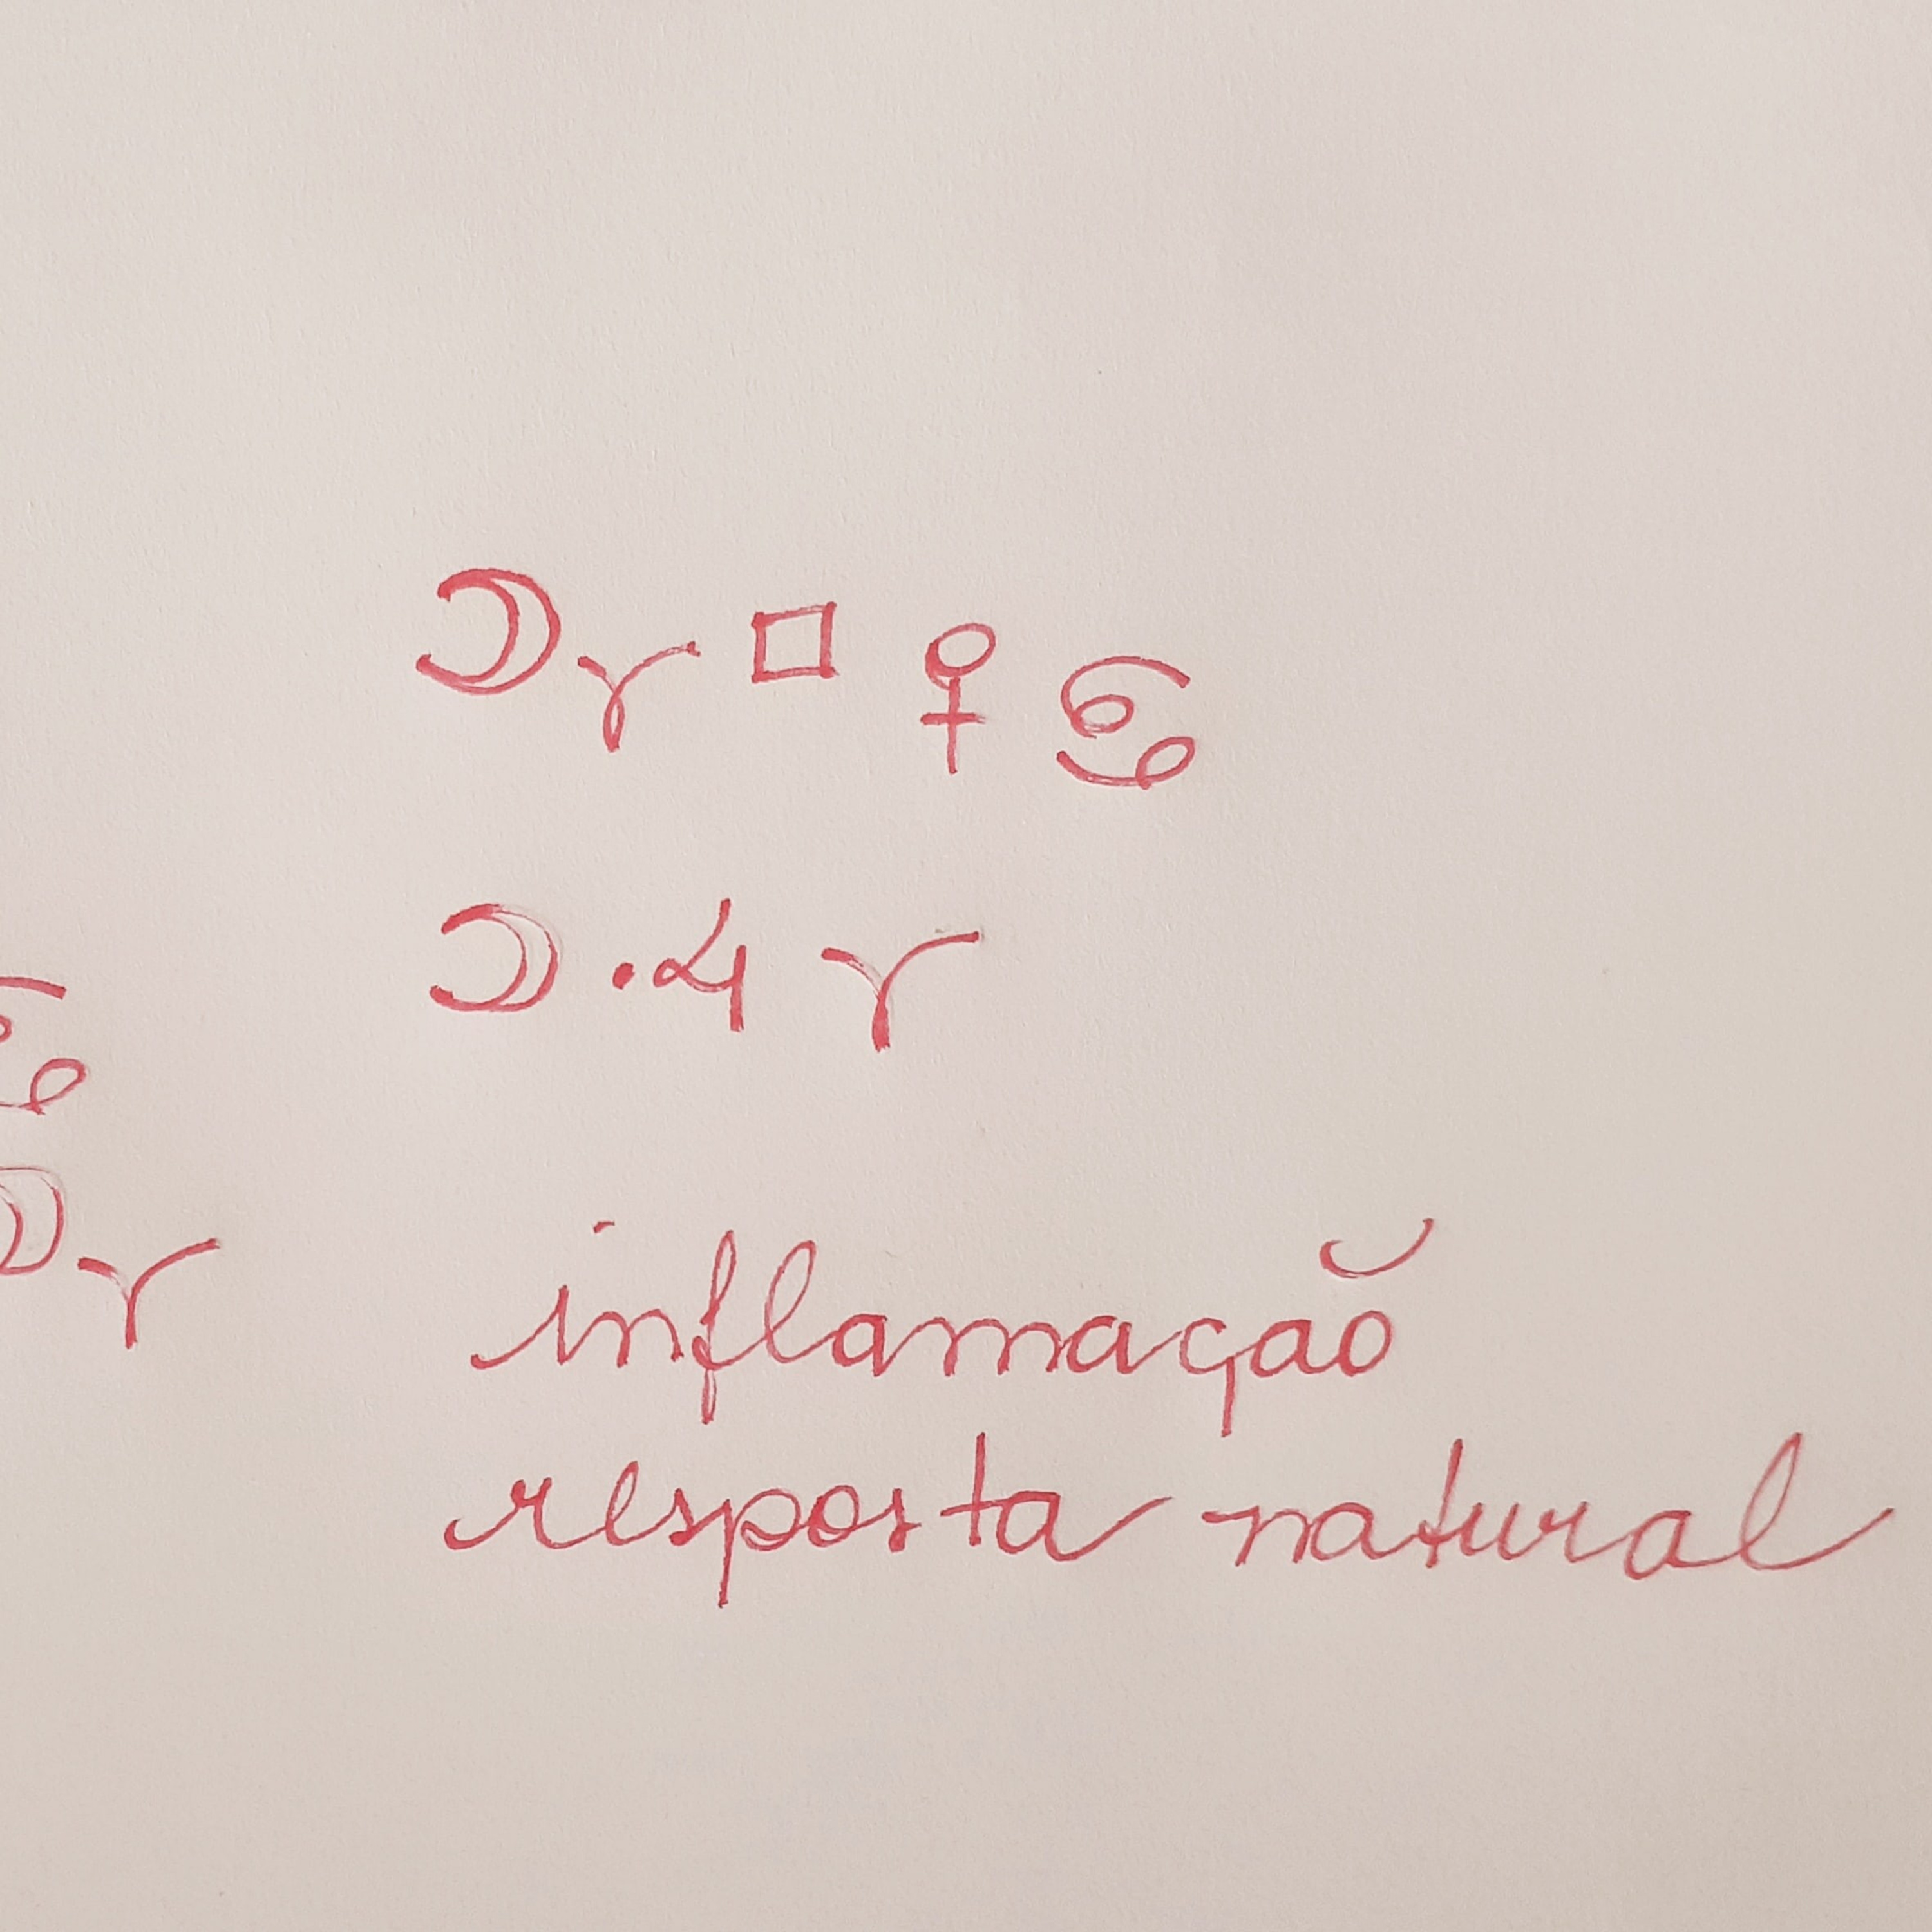 ☽♈□♀♋
☽·♃♈
♋
☽♈
inflamação
resposta natural